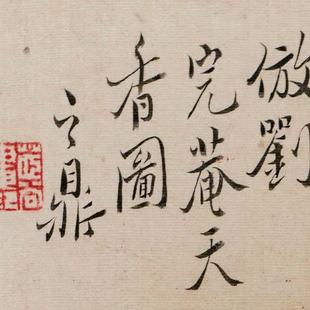 倣劉
完菴天
香圖
之鼎